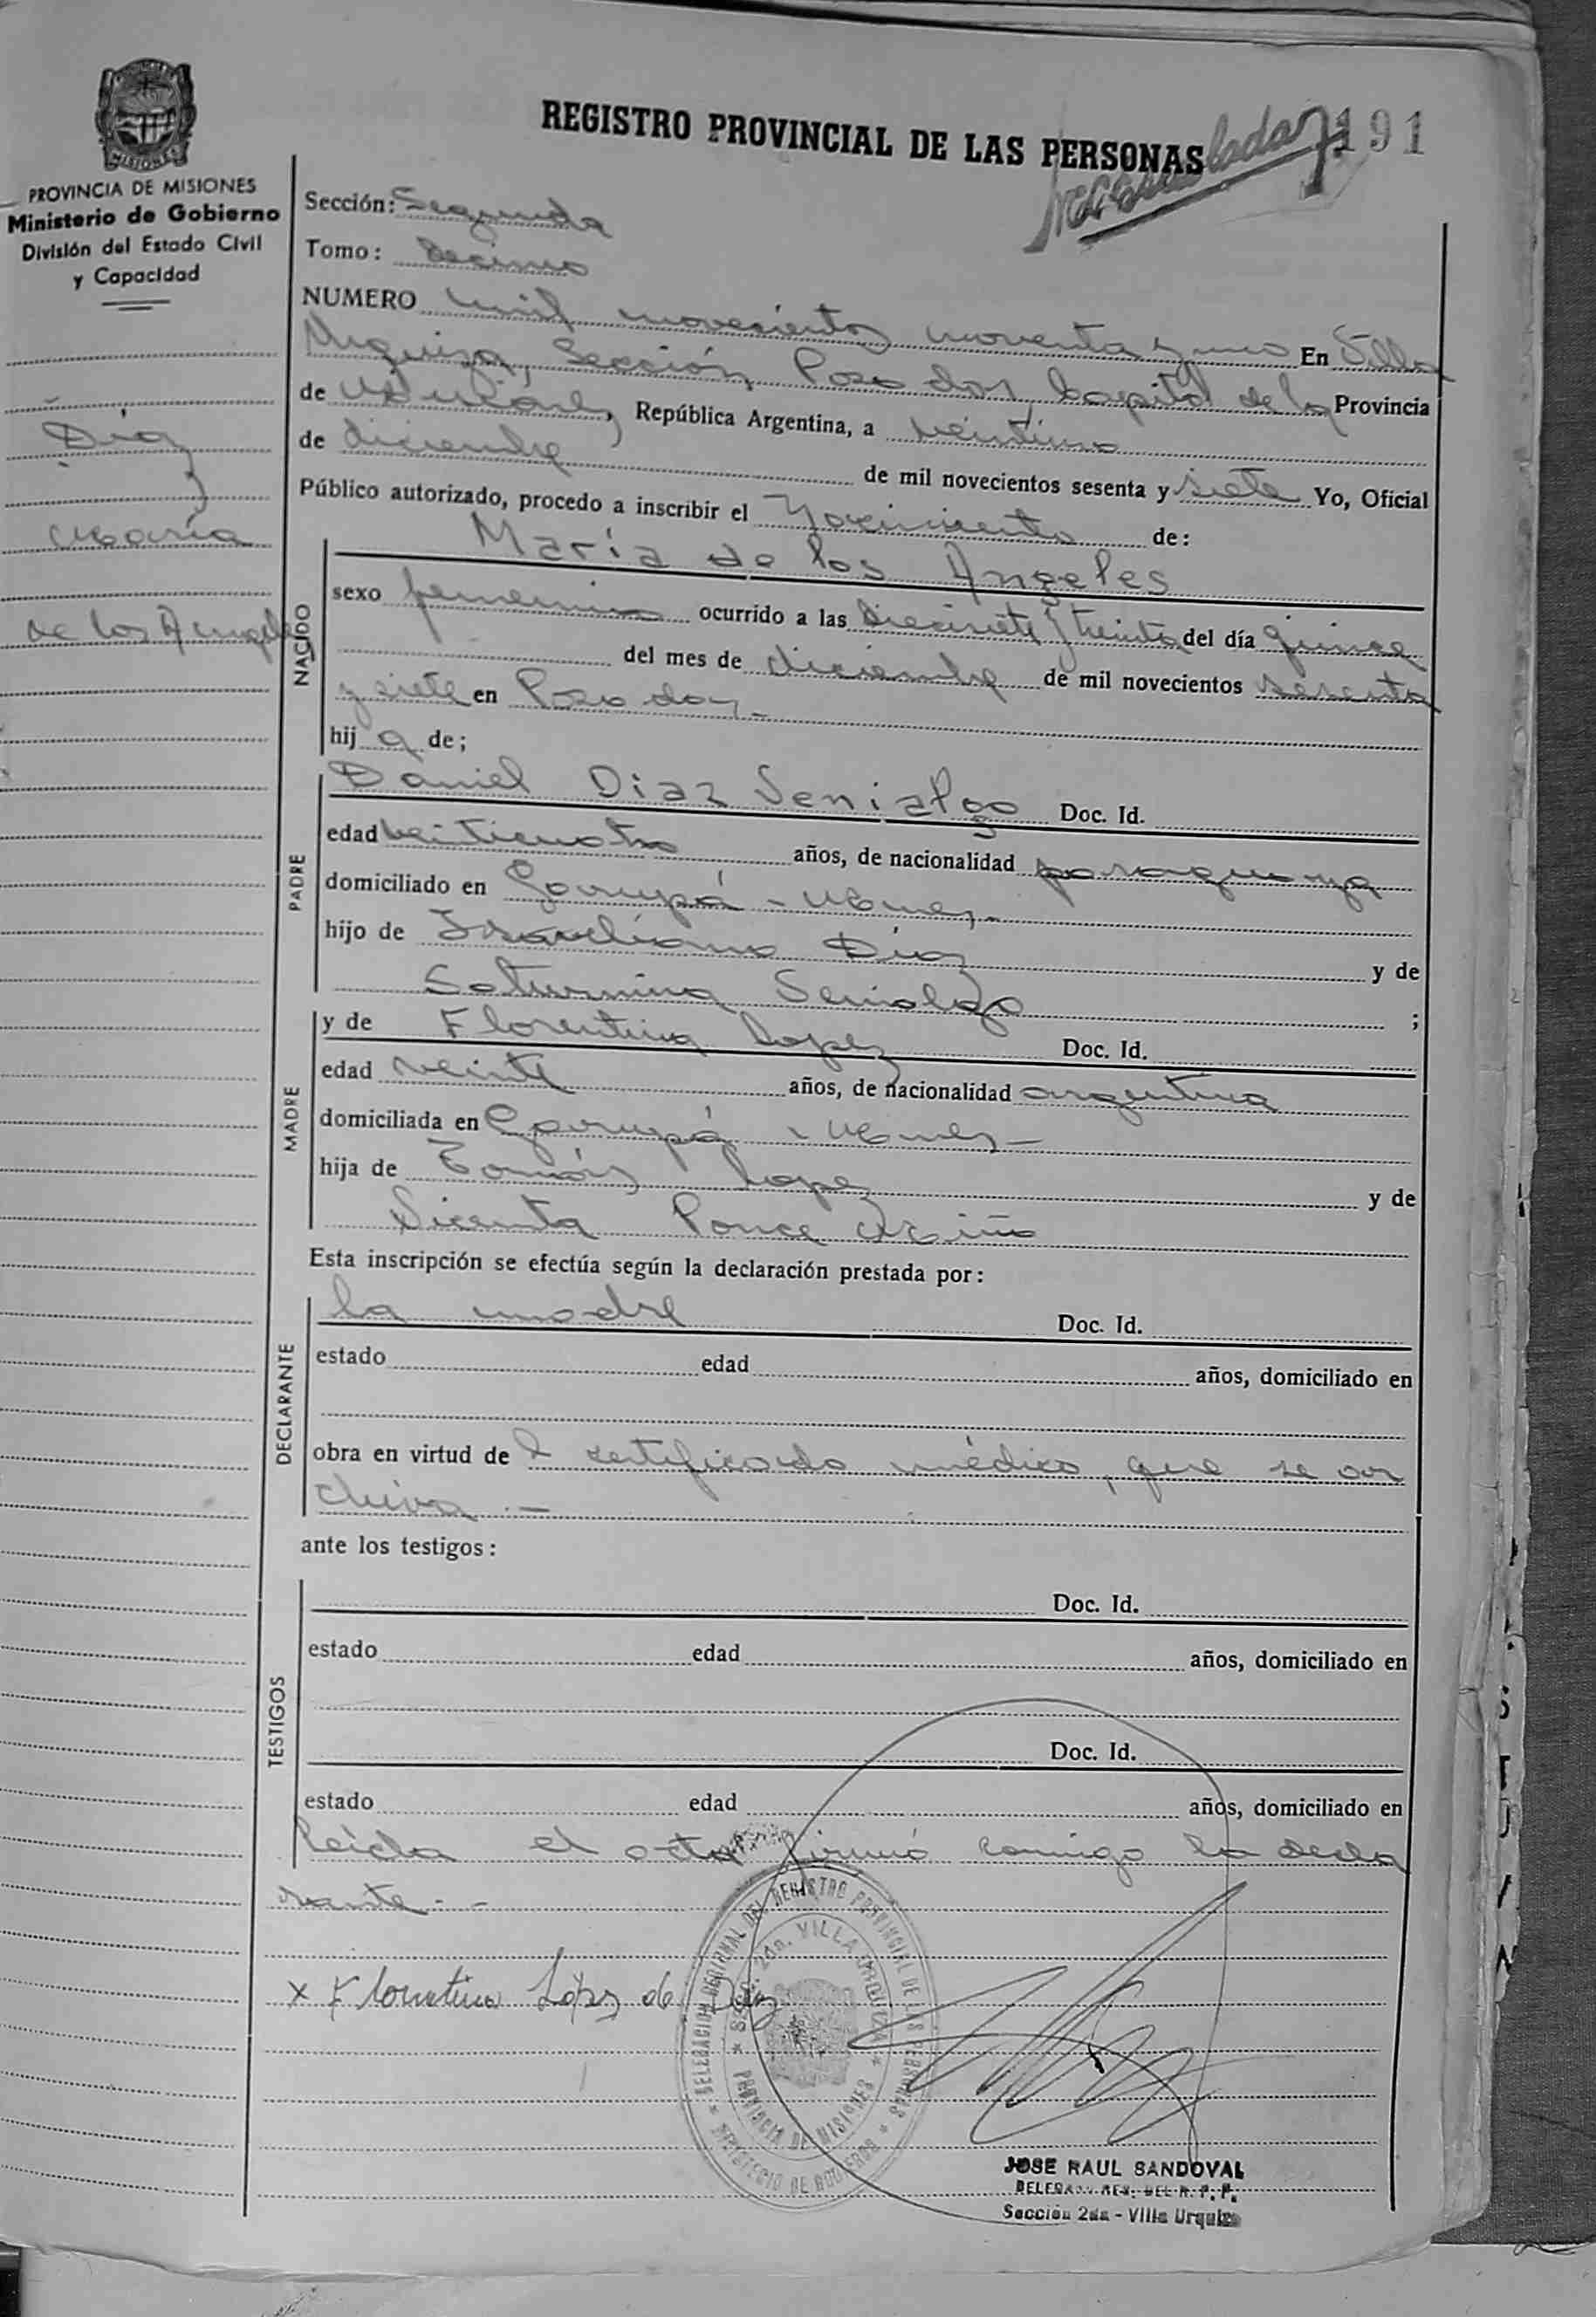 REGISTRO PROVINCIAL DE LAS PERSONAS
191
MISIONES
PROVINCIA DE MISIONES
Ministerio de Gobierno
División del Estado Civil
y Capacidad
Díaz
María
de los Angeles
Sección: Segunda
Tomo: Decimo
NUMERO mil novecientos noventa y uno En Villa
Urquiza, Sección Posadas, Capital de la Provincia
de Misiones, República Argentina, a veintiuno
de diciembre de mil novecientos sesenta y siete Yo, Oficial
Público autorizado, procedo a inscribir el Nacimiento de:
NACIDO
María de los Angeles
sexo femenino ocurrido a las diecisiete y treinta del día quince
del mes de diciembre de mil novecientos sesenta
y siete en Posadas.-
hija de;
PADRE
Daniel Diaz Senialgo Doc. Id.
edad veinticuatro años, de nacionalidad paraguaya
domiciliado en Garupá - Mnes.-
hijo de Díaz y de
Saturnina Senialgo ;
MADRE
y de Florentina Lopez Doc. Id.
edad veinte años, de nacionalidad argentina
domiciliada en Garupá - Mnes.-
hija de Tomás Lopez y de
Vicenta Ponce
Esta inscripción se efectúa según la declaración prestada por:
DECLARANTE
la madre Doc. Id.
estado edad años, domiciliado en
obra en virtud de l certificado médico, que se ar
chiva.-
ante los testigos:
TESTIGOS
Doc. Id.
estado edad años, domiciliado en
Doc. Id.
estado edad años, domiciliado en
Leída el acta firmó conmigo la decla
rante.-
x Florentina López de Díaz
DELEGACION REGIONAL DEL REGISTRO PROVINCIAL DE LAS PERSONAS
SECC. 2da. VILLA URQUIZA
PROVINCIA DE MISIONES
MINISTERIO DE GOBIERNO
JOSE RAUL SANDOVAL
DELEGADO REG. DEL R. P. P.
Sección 2da - Villa Urquiza